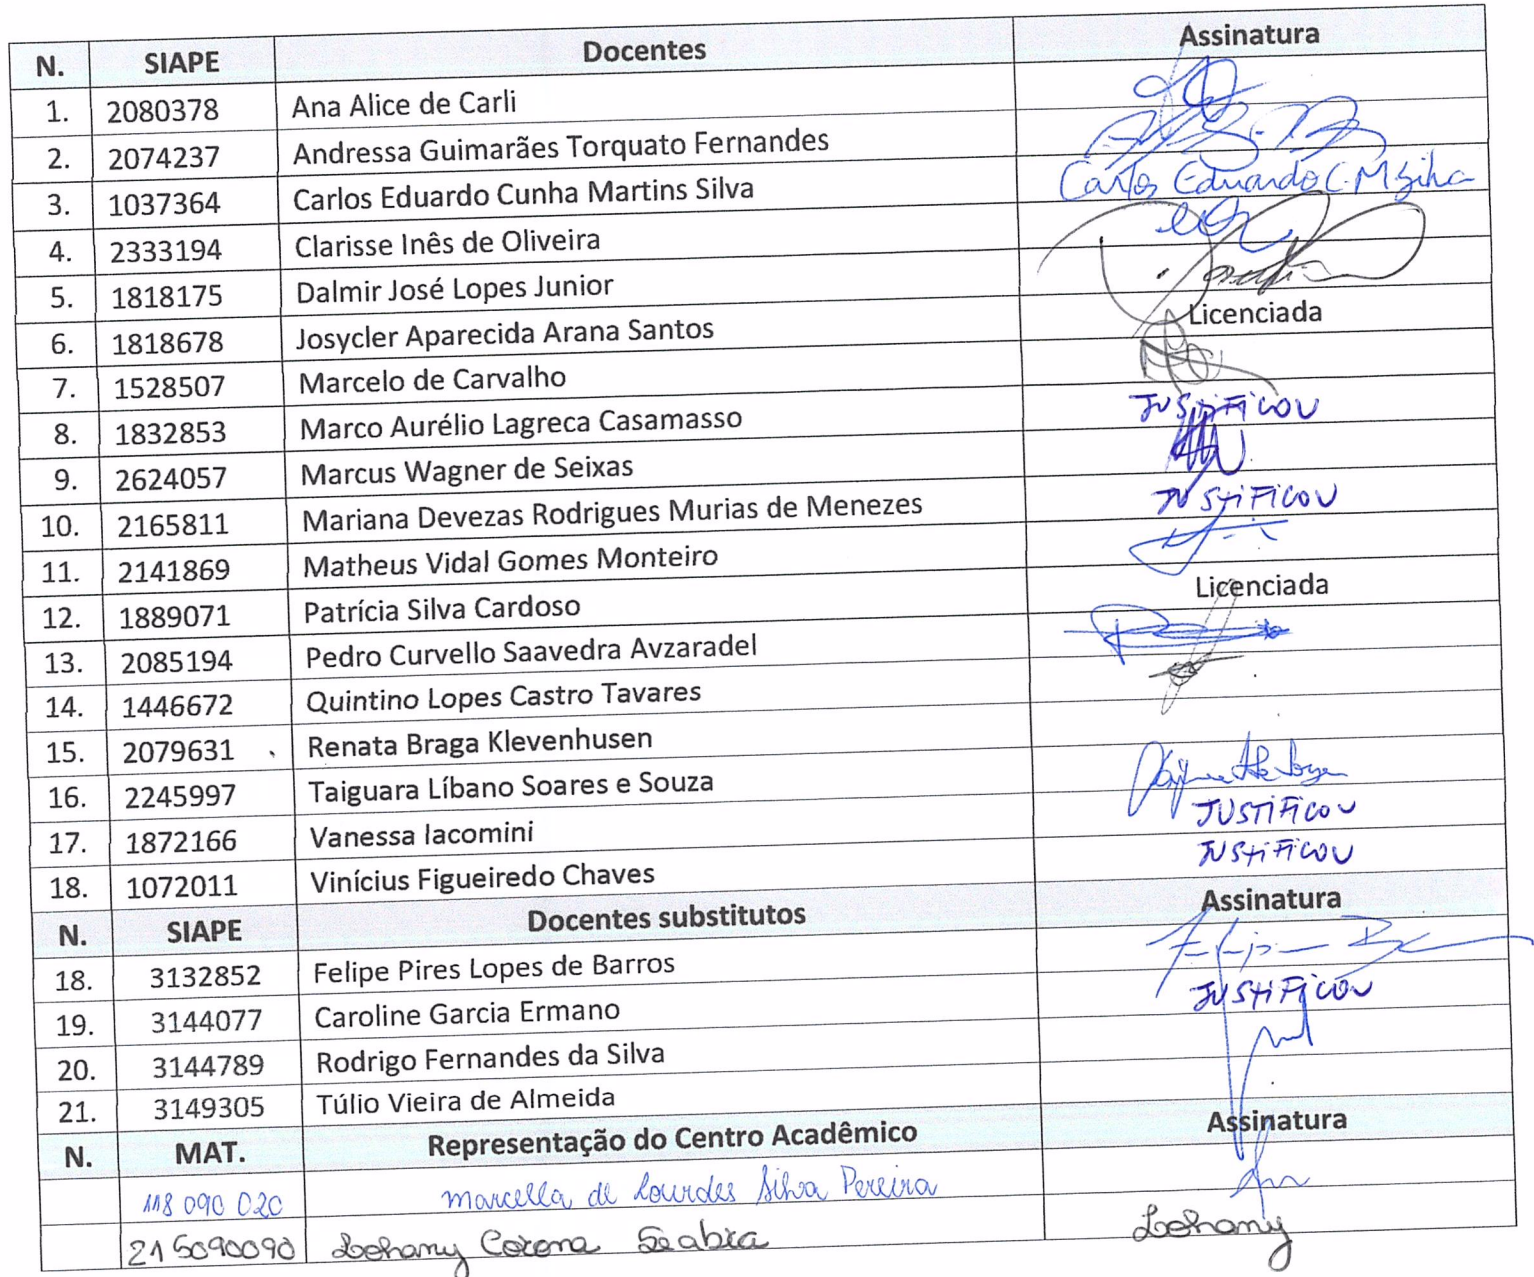 N. SIAPE Docentes Assinatura
1. 2080378 Ana Alice de Carli
2. 2074237 Andressa Guimarães Torquato Fernandes
3. 1037364 Carlos Eduardo Cunha Martins Silva Carlos Eduardo C. M Silva
4. 2333194 Clarisse Inês de Oliveira
5. 1818175 Dalmir José Lopes Junior
6. 1818678 Josycler Aparecida Arana Santos Licenciada
7. 1528507 Marcelo de Carvalho
8. 1832853 Marco Aurélio Lagreca Casamasso JUSTIFICOU
9. 2624057 Marcus Wagner de Seixas
10. 2165811 Mariana Devezas Rodrigues Murias de Menezes JUSTIFICOU
11. 2141869 Matheus Vidal Gomes Monteiro
12. 1889071 Patrícia Silva Cardoso Licenciada
13. 2085194 Pedro Curvello Saavedra Avzaradel
14. 1446672 Quintino Lopes Castro Tavares
15. 2079631 Renata Braga Klevenhusen
16. 2245997 Taiguara Líbano Soares e Souza
17. 1872166 Vanessa Iacomini JUSTIFICOU
18. 1072011 Vinícius Figueiredo Chaves JUSTIFICOU
N. SIAPE Docentes substitutos Assinatura
18. 3132852 Felipe Pires Lopes de Barros
19. 3144077 Caroline Garcia Ermano JUSTIFICOU
20. 3144789 Rodrigo Fernandes da Silva
21. 3149305 Túlio Vieira de Almeida
N. MAT. Representação do Centro Acadêmico Assinatura
118 090 020 marcella de Lourdes Silva Pereira
215090090 Lohany Corona Seabra Lohany